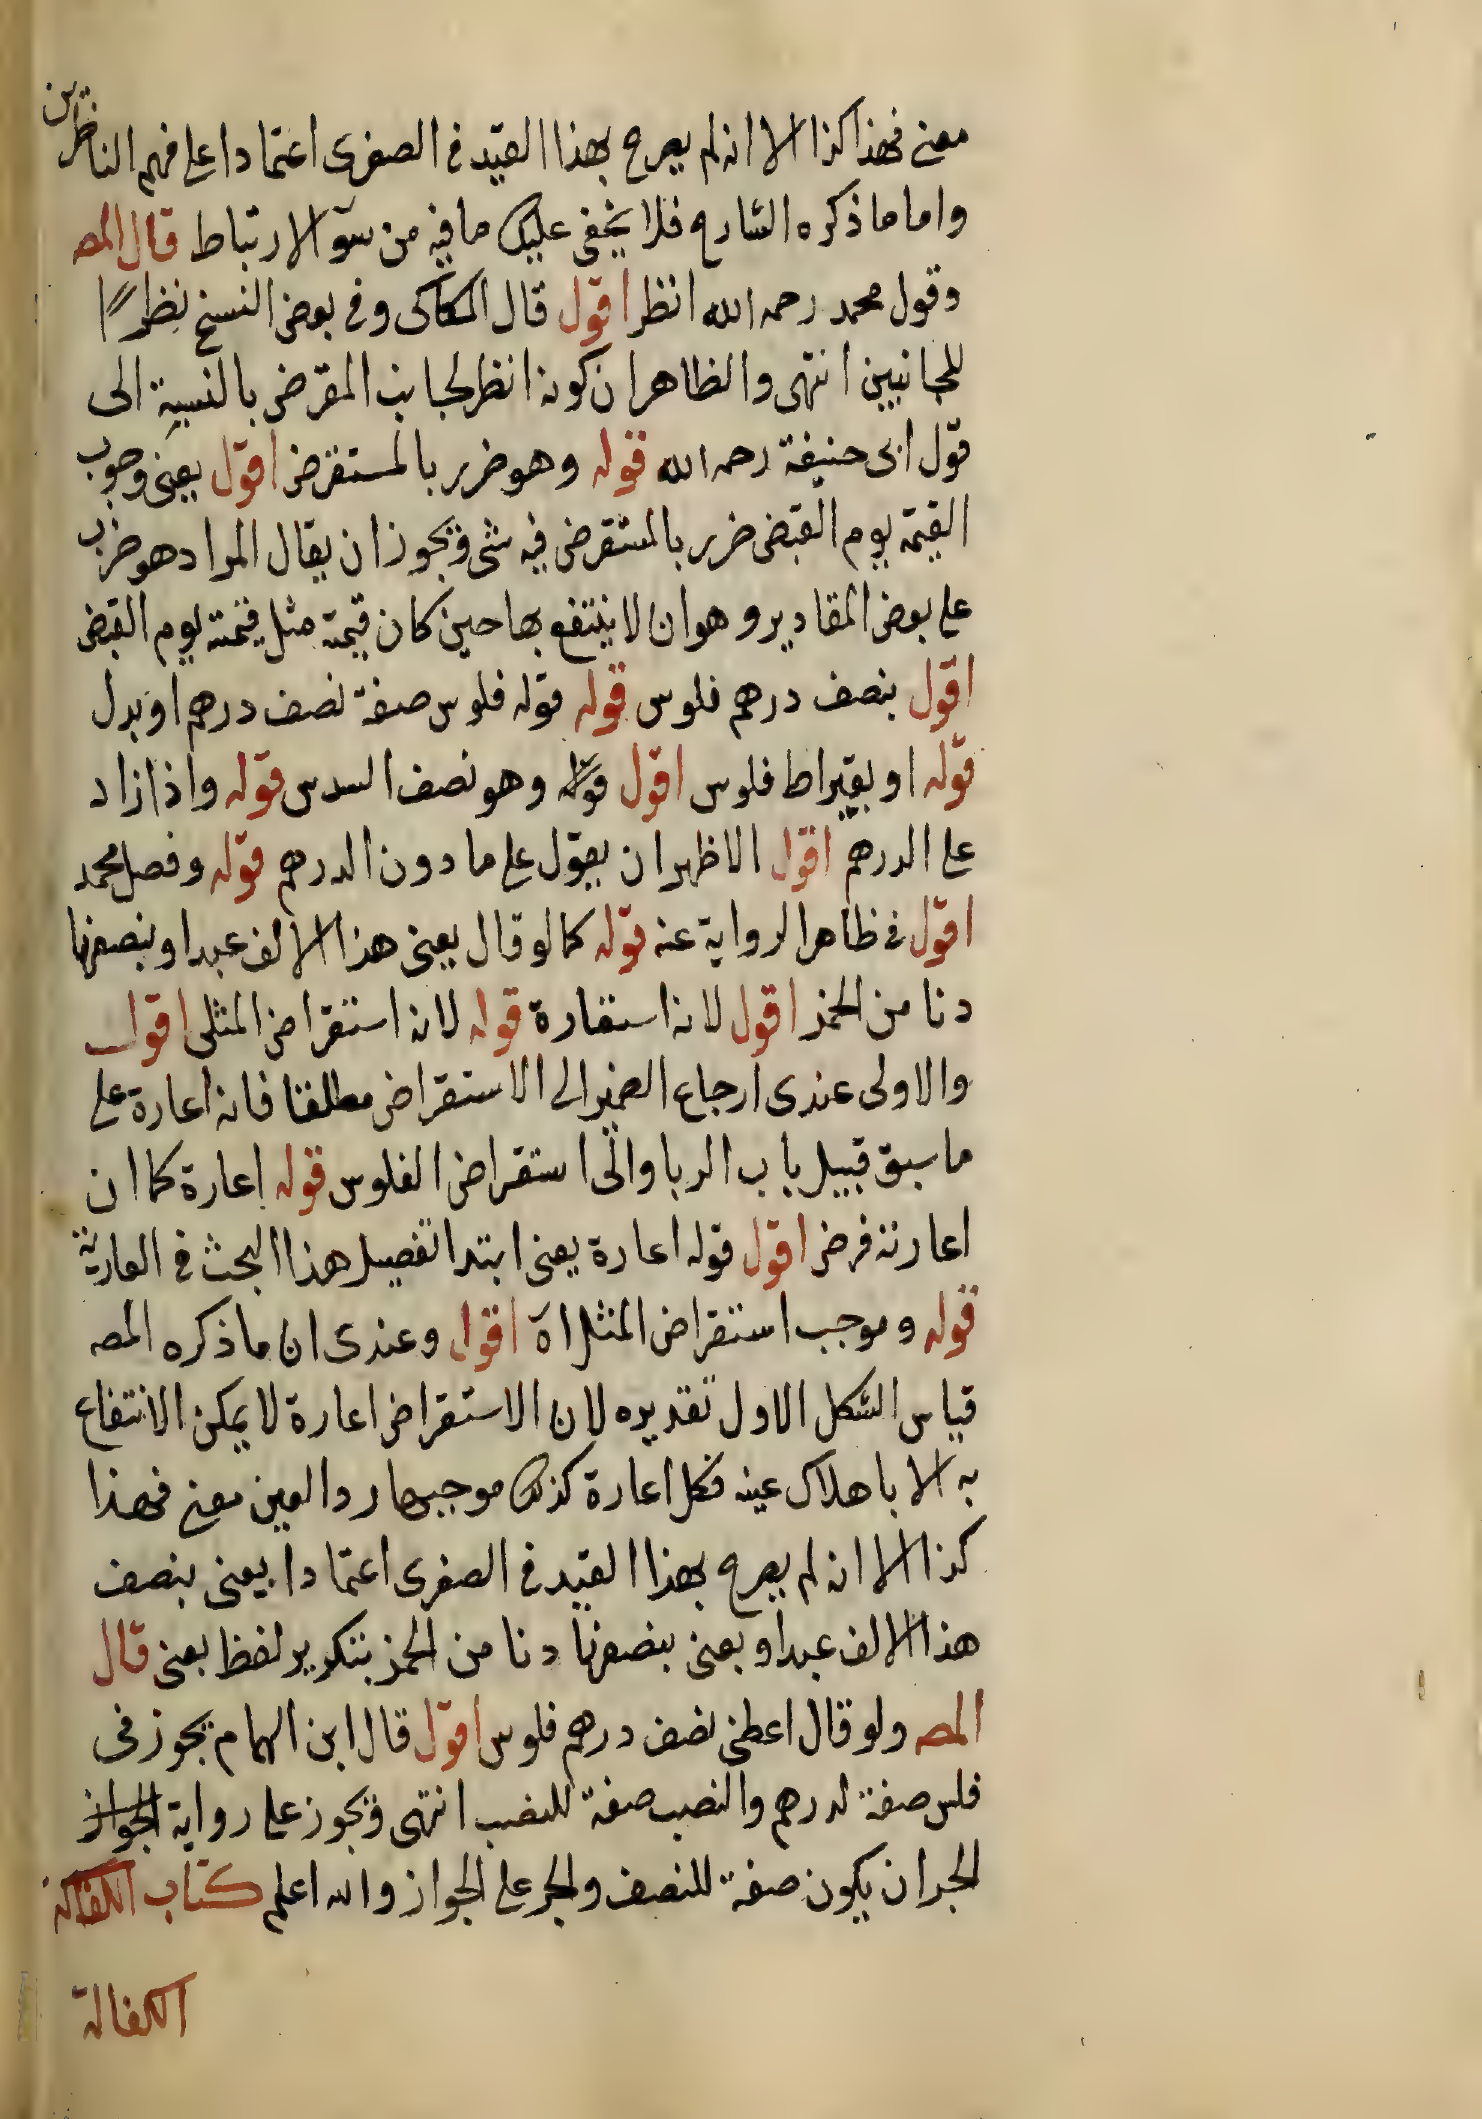 معنى فهذا كذا الا انه لم يصرح بهذا القيد فى الصغرى اعتمادا على فهم الناظرين
واما ما ذكره الشارح فلا يخفى عليك ما فيه من سوٓ الارتباط قال المص
وقول محمد رحمه الله انظر اقول قال الكاكى وفى بعض النسخ نظرًا
للجانبين انتهى والظاهر ان كونه انظر لجانب المقرض بالنسبة الى
قول ابى حنيفة رحمه الله قوله وهو ضرر بالمستقرض اقول يعنى وجوب
القيمة يوم القبض ضرر بالمستقرض فيه شى ويجوز ان يقال المراد هو ضرر
على بعض المقادير وهو ان لا ينتفع بها حين كان قيمته مثل قيمته يوم القبض
اقول بنصف درهم فلوس قوله قوله فلوس صفة نصف درهم او بدل
قوله او بقيراط فلوس اقول قوله وهو نصف السدس قوله واذا زاد
على الدرهم اقول الاظهر ان يقول على ما دون الدرهم قوله وفصل محمد
اقول فى ظاهر الرواية عنه قوله كما لو قال يعنى هذا الالف عبدا وبنصفها
دنا من الخمر اقول لانه استعارة قوله لانه استقراض المثلى اقول
والاولى عندى ارجاع الضمير الى الاستقراض مطلقا فانه اعارة على
ما سبق قبيل باب الربا والى استقراض الفلوس قوله اعارة كما ان
اعارته قرض اقول قوله اعارة يعنى ابتدا تفصيل هذا البحث فى العارية
قوله وموجب استقراض المثل اه اقول وعندى ان ما ذكره المص
قياس الشكل الاول تقديره لان الاستقراض اعارة لا يمكن الانتفاع
به الا باهلاك عينه فكل اعارة كذلك موجبها رد العين معنى فهذا
كذا الا انه لم يصرح بهذا القيد فى الصغرى اعتمادا يعنى بنصف
هذا الالف عبدا ويعنى بنصفها دنا من الخمر بتكرير لفظ بعنى قال
المص ولو قال اعطنى نصف درهم فلوس اقول قال ابن الهمام يجوز فى
فلس صفة لدرهم والنصب صفة للنصب انتهى ويجوز على رواية الجواز
الجر ان يكون صفة للنصف والجر على الجواز والله اعلم كتاب الكفالة
الكفالة